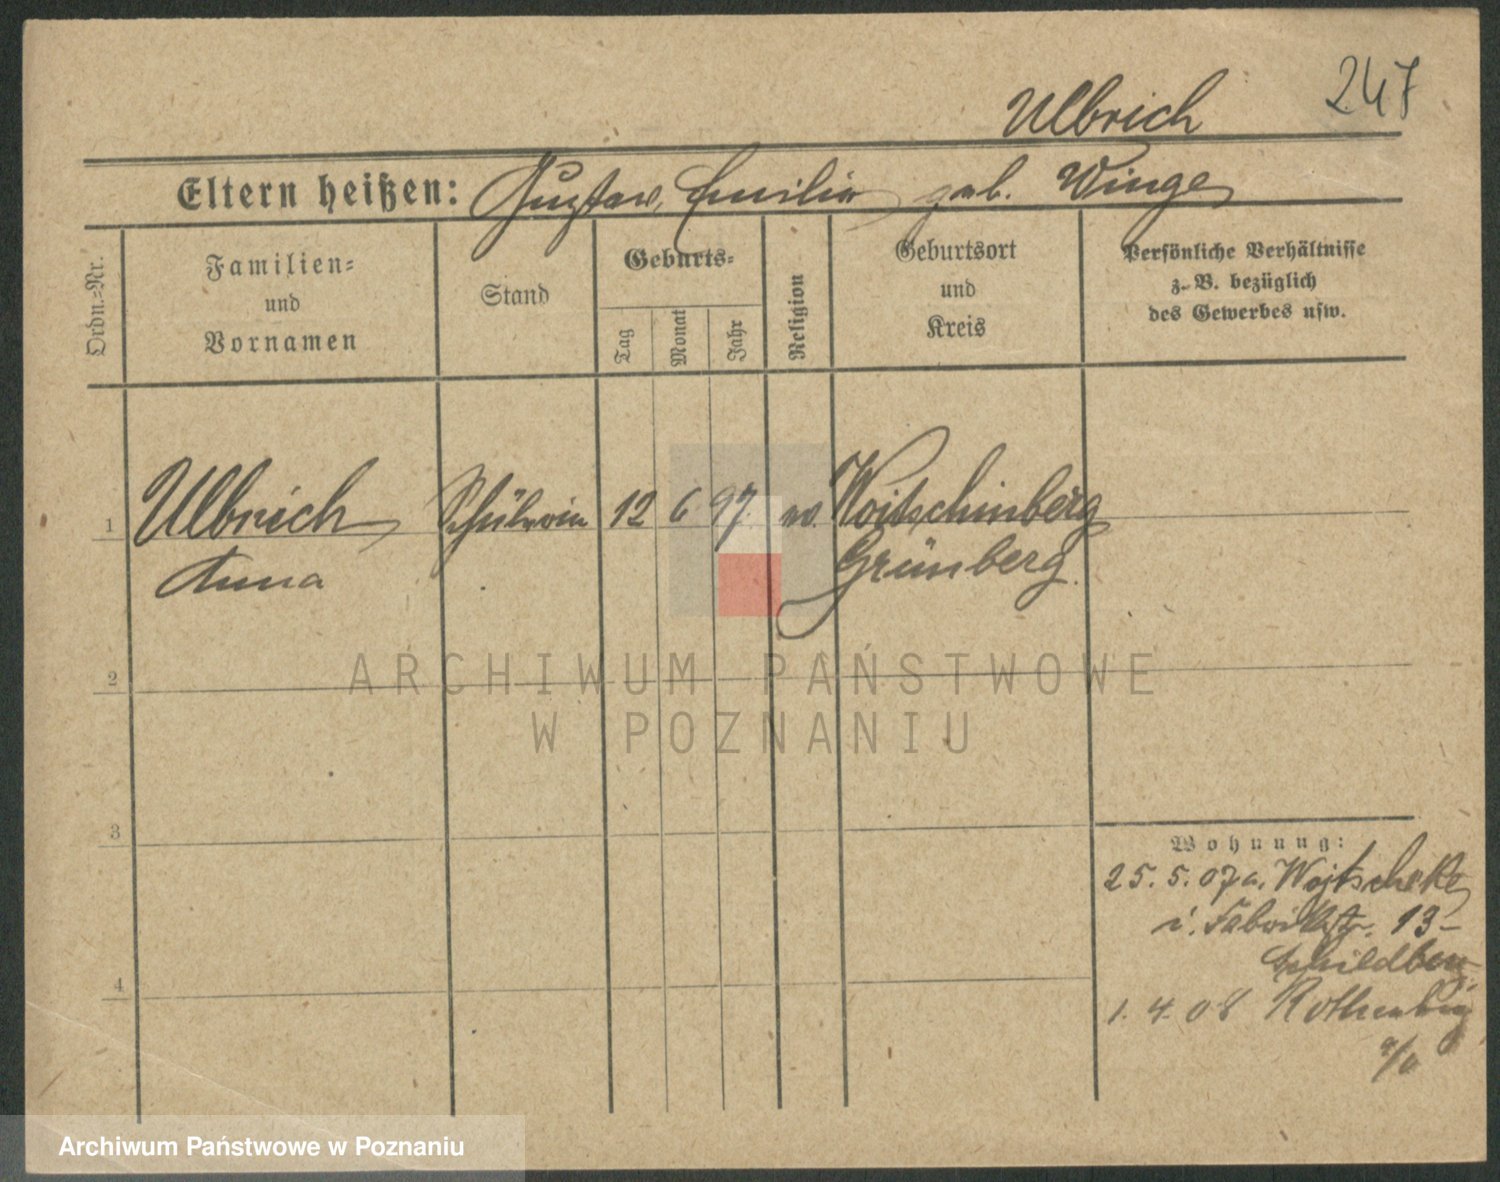 247
Ulbrich
Eltern heißen: Gustav, Emilie geb. Winge
Ordn.-Nr.
Familien-
und
Vornamen
Stand
Geburts-
Tag
Monat
Jahr
Religion
Geburtsort
und
Kreis
Persönliche Verhältnisse
z. B. bezüglich
des Gewerbes usw.
1 Ulbrich Schülerin 12 6 97 ev. Woitschinberg
Anna Grünberg.
2
3
4
Wohnung:
25. 5. 07 a. Wojtscheke
i. Fabrikstr. 13-
Schildberg
1. 4. 08 Rothenburg
a/o
ARCHIWUM PAŃSTWOWE
W POZNANIU
Archiwum Państwowe w Poznaniu